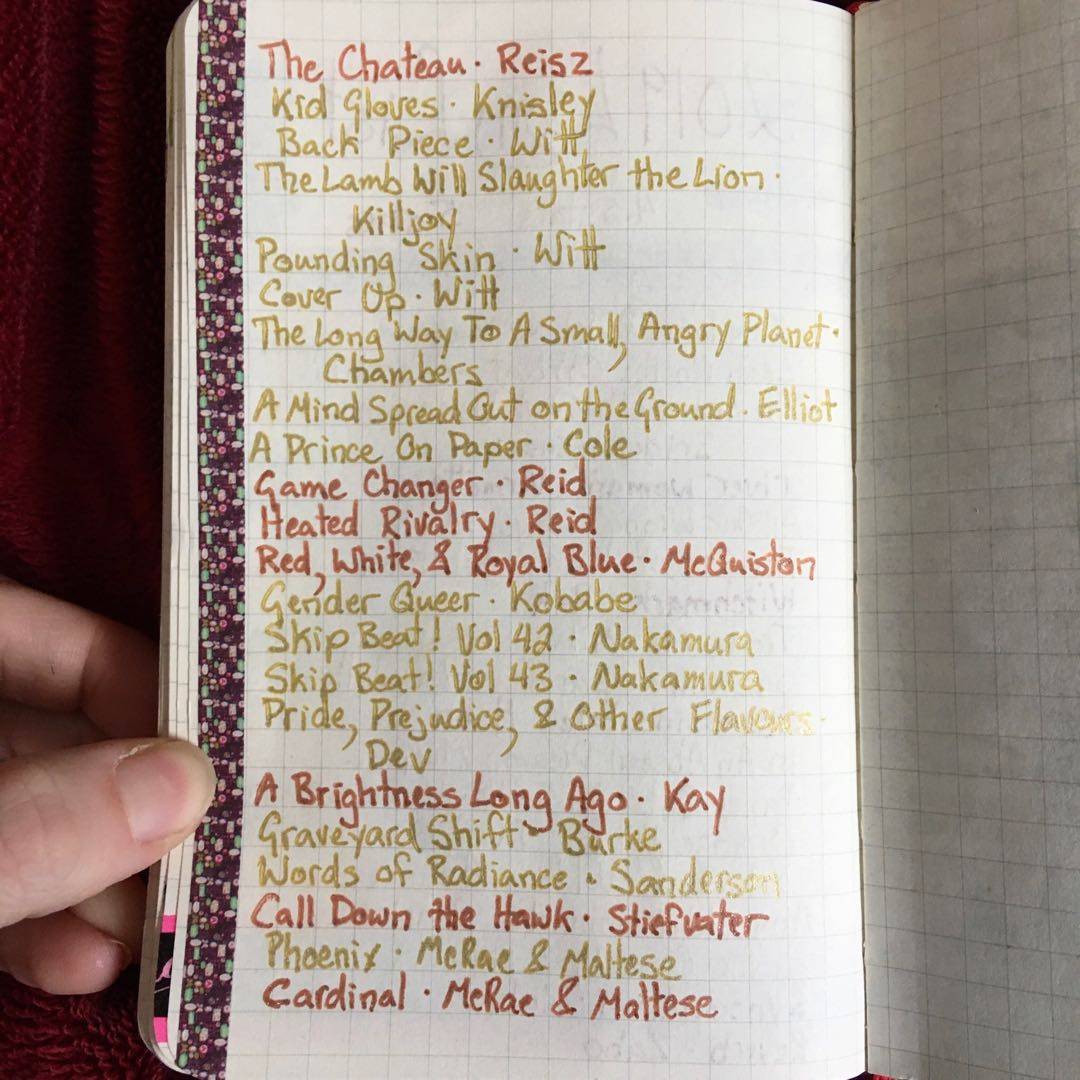 The Chateau · Reisz
Kid Gloves · Knisley
Back Piece · Witt
The Lamb Will Slaughter the Lion ·
Killjoy
Pounding Skin · Witt
Cover Up · Witt
The Long Way To A Small, Angry Planet ·
Chambers
A Mind Spread Out on the Ground · Elliot
A Prince On Paper · Cole
Game Changer · Reid
Heated Rivalry · Reid
Red, White, & Royal Blue · McQuiston
Gender Queer · Kobabe
Skip Beat! Vol 42 · Nakamura
Skip Beat! Vol 43 · Nakamura
Pride, Prejudice, & Other Flavours ·
Dev
A Brightness Long Ago · Kay
Graveyard Shift · Burke
Words of Radiance · Sanderson
Call Down the Hawk · Stiefvater
Phoenix · McRae & Maltese
Cardinal · McRae & Maltese